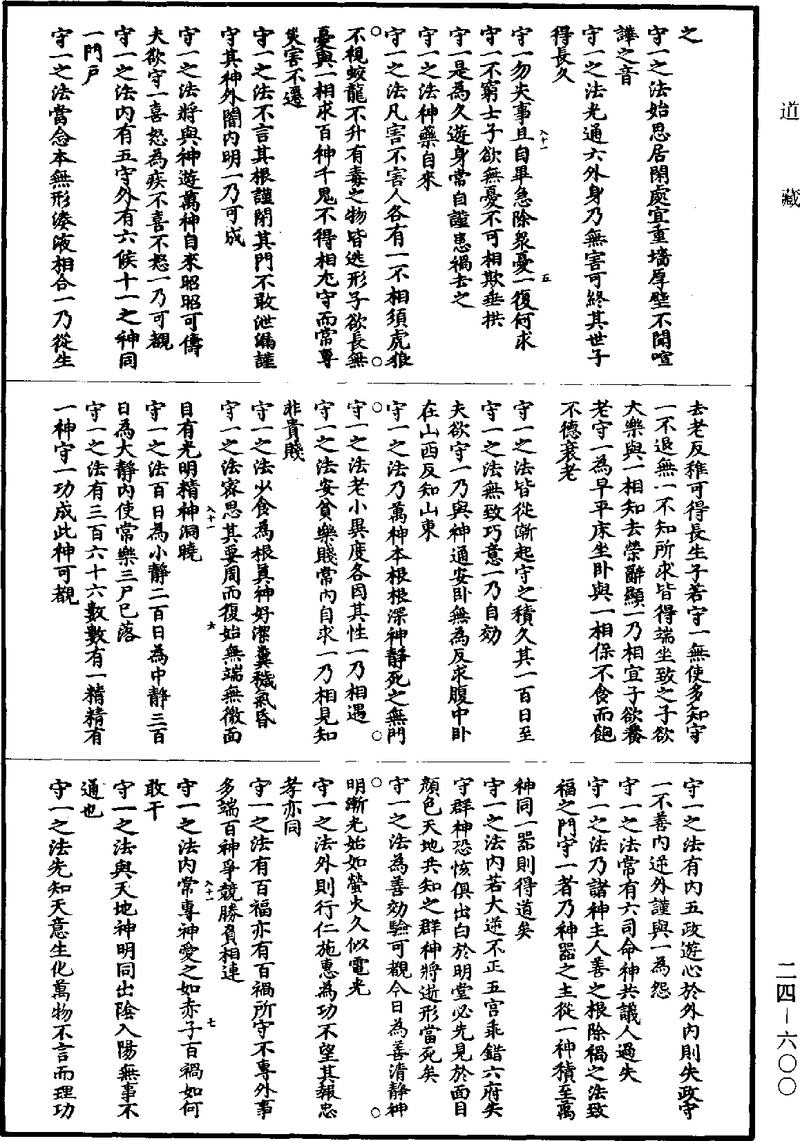 道藏
之
守一之法始思居閑處宜重墻厚壁不聞喧
譁之音
守一之法光通六外身乃無害可終其世子
得長久
守一勿失事且自畢急除衆憂一復何求
入十一 五
守一不窮士子欲無憂不可相欺垂拱
守一是為久遊身常自謹患禍去之
守一之法神藥自來
守一之法凡害不害人各有一不相須虎狼
不視蛟龍不升有毒之物皆逃形子欲長無
憂與一相求百神千鬼不得相尤守而常專
災害不遷
守一之法不言其根謹閉其門不敢泄漏謹
守其神外闇内明一乃可成
守一之法將與神遊萬神自來昭昭可儔
夫欲守一喜怒為疾不喜不怒一乃可觀
守一之法内有五守外有六候十一之神同
一門戶
守一之法當念本無形湊液相合一乃從生
去老反稚可得長生子若守一無使多知守
一不退無一不知所求皆得端坐致之子欲
大樂與一相知去榮辭顯一乃相宜子欲養
老守一為早平床坐卧與一相保不食而飽
不德衰老
守一之法皆從漸起守之積久其一百日至
守一之法無致巧意一乃自効
夫欲守一乃與神通安卧無為反求腹中卧
在山西反知山東
守一之法乃萬神本根根深神靜死之無門
守一之法老小異度各因其性一乃相遇
守一之法安貧樂賤常内自求一乃相見知
非貴賤
守一之法少食為根真神好潔糞穢氣昏
守一之法密思其要周而復始無端無徼面
入十一 六
目有光明精神洞曉
守一之法百日為小靜二百日為中靜三百
日為大靜内使常樂三尸已落
守一之法有三百六十六數數有一精精有
一神守一功成此神可觀
守一之法有内五政遊心於外内則失政守
一不善内逆外謹與一為怨
守一之法常有六司命神共議人過失
守一之法乃諸神主人善之根除禍之法致
福之門守一者乃神器之主從一神積至萬
神同一器則得道矣
守一之法内若大逆不正五宫乖錯六府失
守群神恐怖俱出白於明堂必先見於面目
顔色天地共知之群神將逝形當死矣
守一之法為善効驗可觀今日為善清靜神
明漸光始如螢火久似電光
守一之法外則行仁施惠為功不望其報忠
孝亦同
守一之法有百福亦有百禍所守不專外事
多端百神爭競勝負相連
入十一 七
守一之法内常專神愛之如赤子百禍如何
敢干
守一之法與天地神明同出陰入陽無事不
通也
守一之法先知天意生化萬物不言而理功
二四—六〇〇